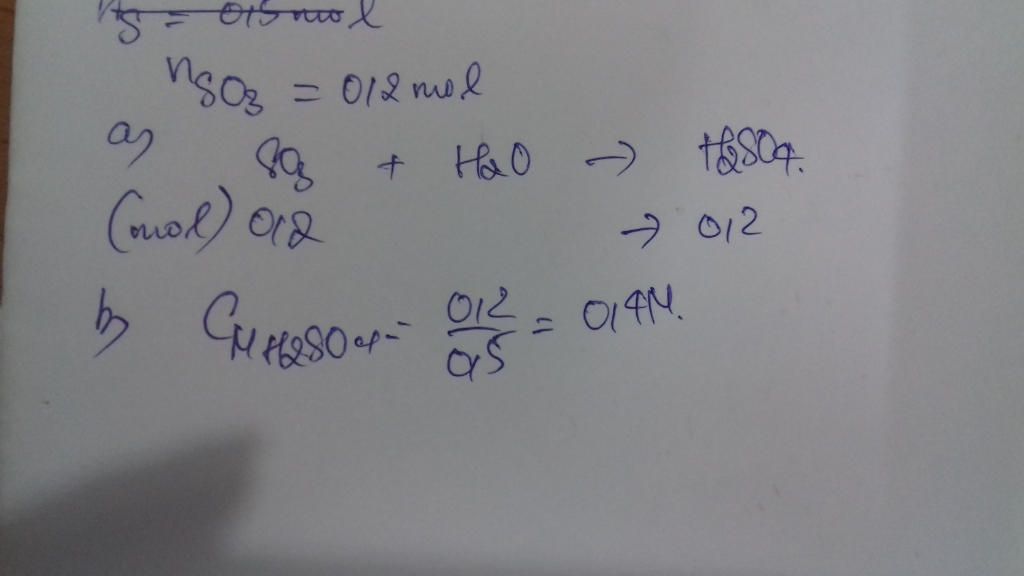 nS = 0,5 mol
nSO3 = 0,2 mol
a)
SO3 + H2O → H2SO4.
(mol) 0,2 → 0,2
b) CM H2SO4 = 0,2/0,5 = 0,4M.